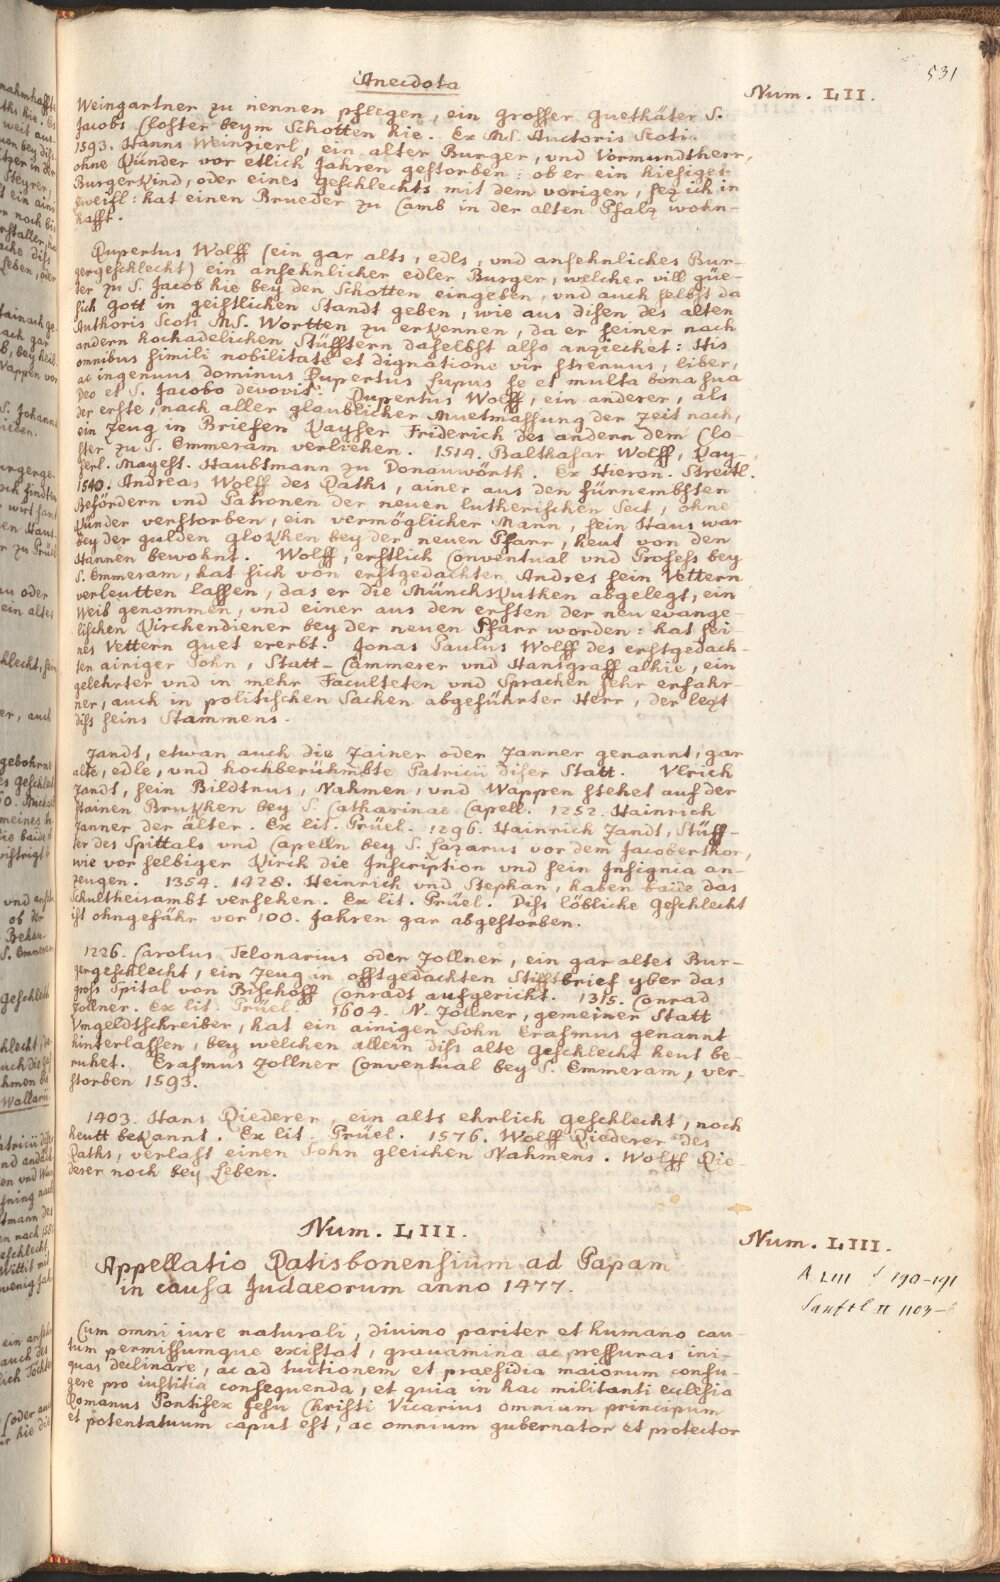 531
Anecdota
Num. LII.
Weingartner zu nennen pflegen, ein grosser guethäter S.
Jacobs Closter beym Schotten hie. Ex MS. Auctoris Scoti.
1593. Hanns Weinzierl, ein alter Burger, vnd Vormundtherr,
ohne Künder vor etlich Jahren gestorben: ob er ein hiesiges
Burgerkind, oder eines geschlechts mit dem vorigen, sez ich in
zweifl: hat einen Brueder zu Camb in der alten Pfalz wohn-
hafft.
Rupertus Wolff (ein gar alts, edls, vnd ansehnliches Bur-
gergeschlecht) ein ansehnlicher edler Burger, welcher vill güe-
ter zu S. Jacob hie bey den Schotten eingeben, vnd auch selbst da
sich Gott in geistlichen Standt geben, wie aus disen des alten
Authoris Scoti MS. Wortten zu erkennen, da er seiner nach
andern hochadelichen Stüfftern daselbst also anziechet: His
omnibus simili nobilitate et dignatione vir strenuus, liber,
ac ingenuus dominus Rupertus Lupus se et multa bona sua
Deo et S. Jacobo devovit. Rupertus Wolff, ein anderer, als
der erste, nach aller glaublicher Muetmassung der Zeit nach,
ein Zeug in Briefen Kayser Friderich des andern dem Clo-
ster zu S. Emmeram verliehen. 1514. Balthasar Wolff, Kay-
serl. Mayest. Haubtmann zu Donauwörth. Ex Hieron. Streitl.
1540. Andreas Wolff des Raths, ainer aus den fürnembsten
Befördern vnd Patronen der neuen lutherischen Sect, ohne
Künder verstorben, ein vermöglicher Mann, sein Haus war
bey der gulden glokhen bey der neuen Pfarr, heut von den
Hannen bewohnt. Wolff, erstlich Conventual vnd Profess bey
S. Emmeram, hat sich von erstgedachten Andres sein Vettern
verleutten lassen, das er die Münchskutten abgelegt, ein
Weib genommen, vnd einer aus den ersten der neu evange-
lischen Kirchendiener bey der neuen Pfarr worden: hat sei-
nes Vettern guet ererbt. Jonas Paulus Wolff des erstgedach-
ten ainiger Sohn, Statt-Cammerer vnd Hansgraff alhie, ein
gelehrter vnd in mehr Faculteten vnd Sprachen sehr erfahr-
ner, auch in politischen Sachen abgeführter Herr, der lezt
diss seins Stammens.
Zandt, etwan auch die Zainer oder Zanner genannt, gar
alte, edle, vnd hochberühmbte Patricii diser Statt. Vlrich
Zandt, sein Bildtnus, Nahmen, vnd Wappen stehet auf der
stainen Brukhen bey S. Catharinae Capell. 1252. Hainrich
Zanner der älter. Ex lit. Prüel. 1296. Hainrich Zandt, Stüff-
ter des Spittals vnd Capelln bey S. Lazarus vor dem Jacoberthor,
wie vor selbiger Kirch die Inscription vnd sein Insignia an-
zeugen. 1354. 1428. Heinrich vnd Stephan, haben baide das
Schultheisambt versehen. Ex lit. Prüel. Diss löbliche Geschlecht
ist ohngefähr vor 100. Jahren gar abgestorben.
1226. Carolus Telonarius oder Zollner, ein gar altes Bur-
gergeschlecht, ein Zeug in offtgedachten Stifftbrief yber das
gross Spital von Bischoff Conradt aufgericht. 1315. Conrad
Zollner. Ex lit. Prüel. 1604. N. Zollner, gemeiner Statt
Vmgeldtschreiber, hat ein ainigen Sohn Erasmus genannt
hinterlassen, bey welchen allein diss alte Geschlecht heut be-
ruhet. Erasmus Zollner Conventual bey S. Emmeram, ver-
storben 1593.
1403. Hans Riederer, ein alts ehrlich geschlecht, noch
heutt bekannt. Ex lit. Prüel. 1576. Wolff Riederer des
Raths, verlast einen Sohn gleichen Nahmens. Wolff Rie-
derer noch bey Leben.
Num. LIII.
Num. LIII.
Appellatio Ratisbonensium ad Papam
in causa Judaeorum anno 1477.
A LIII f 190-191
Cum omni iure naturali, divino pariter et humano cau-
tum permissumque existat, gravamina ac pressuras ini-
quas declinare, ac ad tuitionem et praesidia maiorum confu-
gere pro iustitia consequenda, et quia in hac militanti ecclesia
Romanus Pontifex Jesu Christi Vicarius omnium principum
et potentatuum caput est, ac omnium gubernator et protector